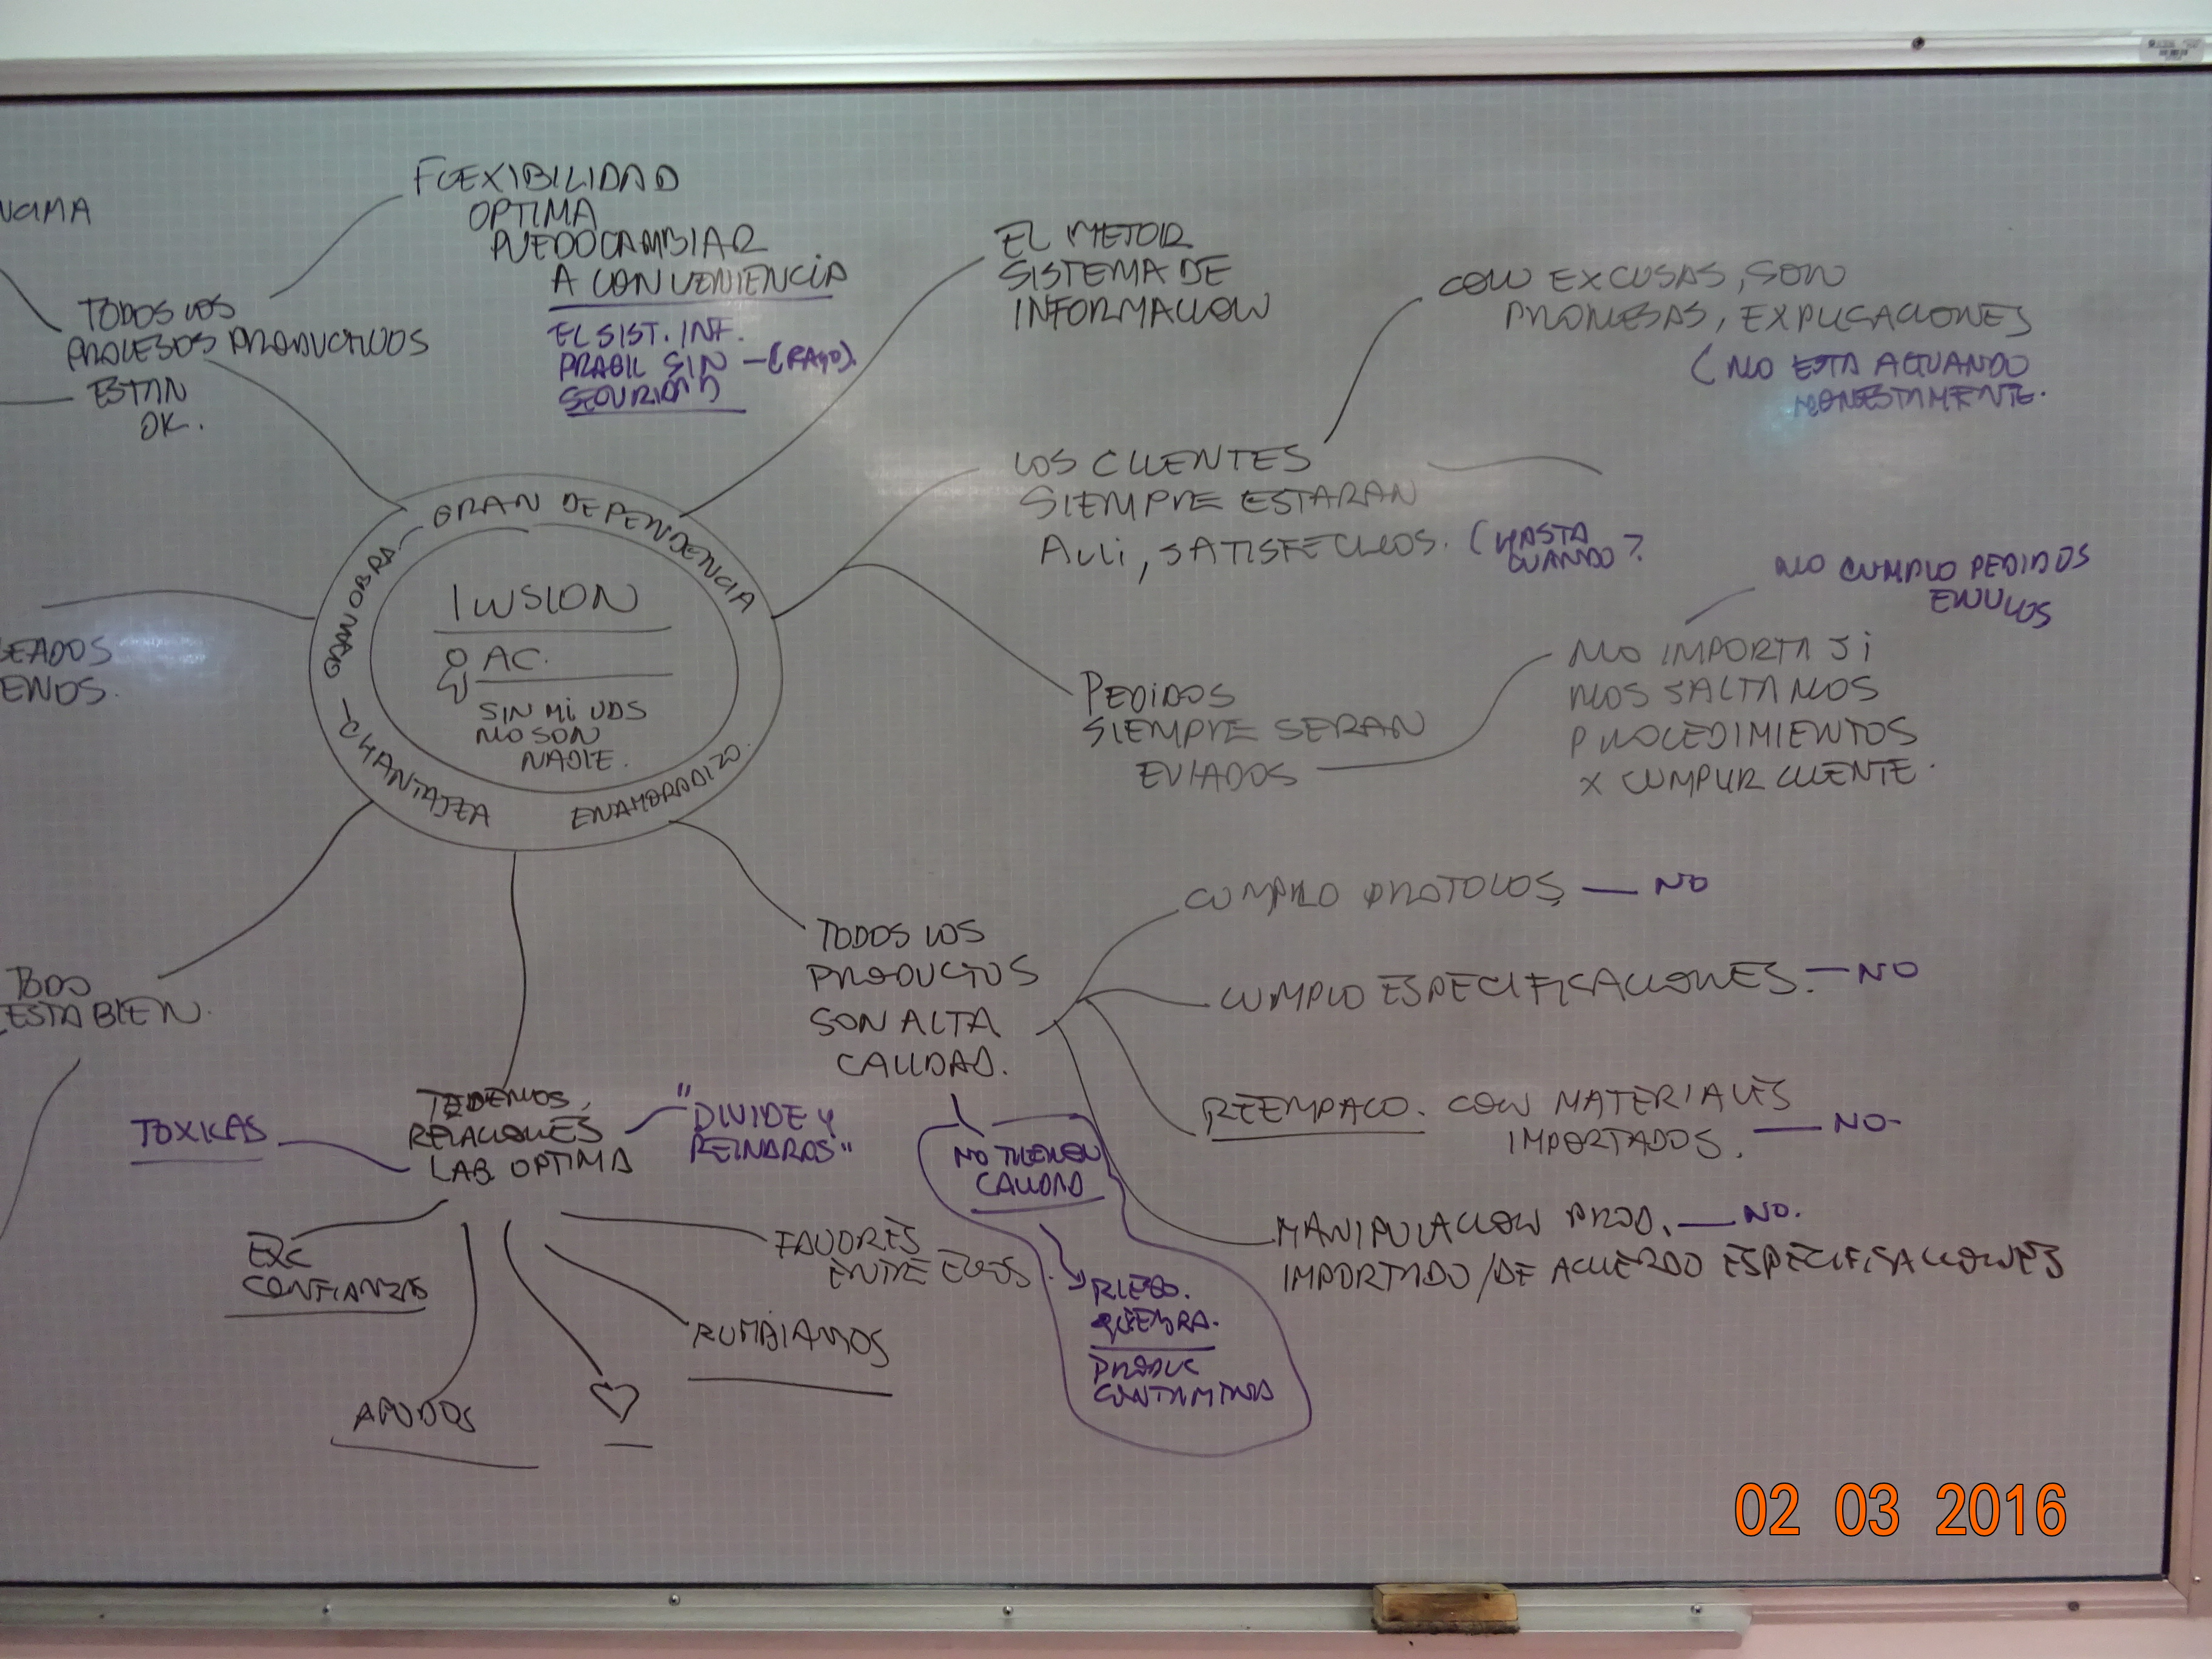 FLEXIBILIDAD
OPTIMA
PUEDO CAMBIAR
A CONVENIENCIA
EL SIST. INF.
SIN
SEGURIDAD
TODOS LOS
PROCESOS PRODUCTIVOS
ESTAN
OK.
EL MEJOR
SISTEMA DE
INFORMACION
CON EXCUSAS, SON
PROMESAS, EXPLICACIONES
(NO ESTA ACTUANDO
HONESTAMENTE.
LOS CLIENTES
SIEMPRE ESTARAN
ALLI, SATISFECHOS. (HASTA
CUANDO?
NO CUMPLO PEDIDOS
NO IMPORTA SI
NOS SALTAMOS
PROCEDIMIENTOS
X CUMPLIR CLIENTE.
PEDIDOS
SIEMPRE SERAN
EVIADOS
GRAN OBRA - GRAN DEPENDENCIA
- CHANTAJEA ENAMORADIZO.
ILUSION
AC.
SIN MI UDS
NO SON
NADIE.
EADOS
ENOS.
TODO
ESTA BIEN.
TODOS LOS
PRODUCTOS
SON ALTA
CALIDAD.
CUMPLO PROTOLOS — NO
CUMPLO ESPECIFISACIONES. — NO
REEMPACO. CON MATERIALES
IMPORTADOS. — NO-
MANIPULACION PROD. — NO.
IMPORTADO/DE ACUERDO ESPECIFISACIONES
NO TIENEN
CALIDAD
QUIEBRA.
TOXICAS
RELACIONES
LAB. OPTIMA
"DIVIDE Y
REINARAS"
EXC
CONFIANZA
APODOS
RUMBIAMOS
FAVORES
ENTRE ELLOS.
02 03 2016